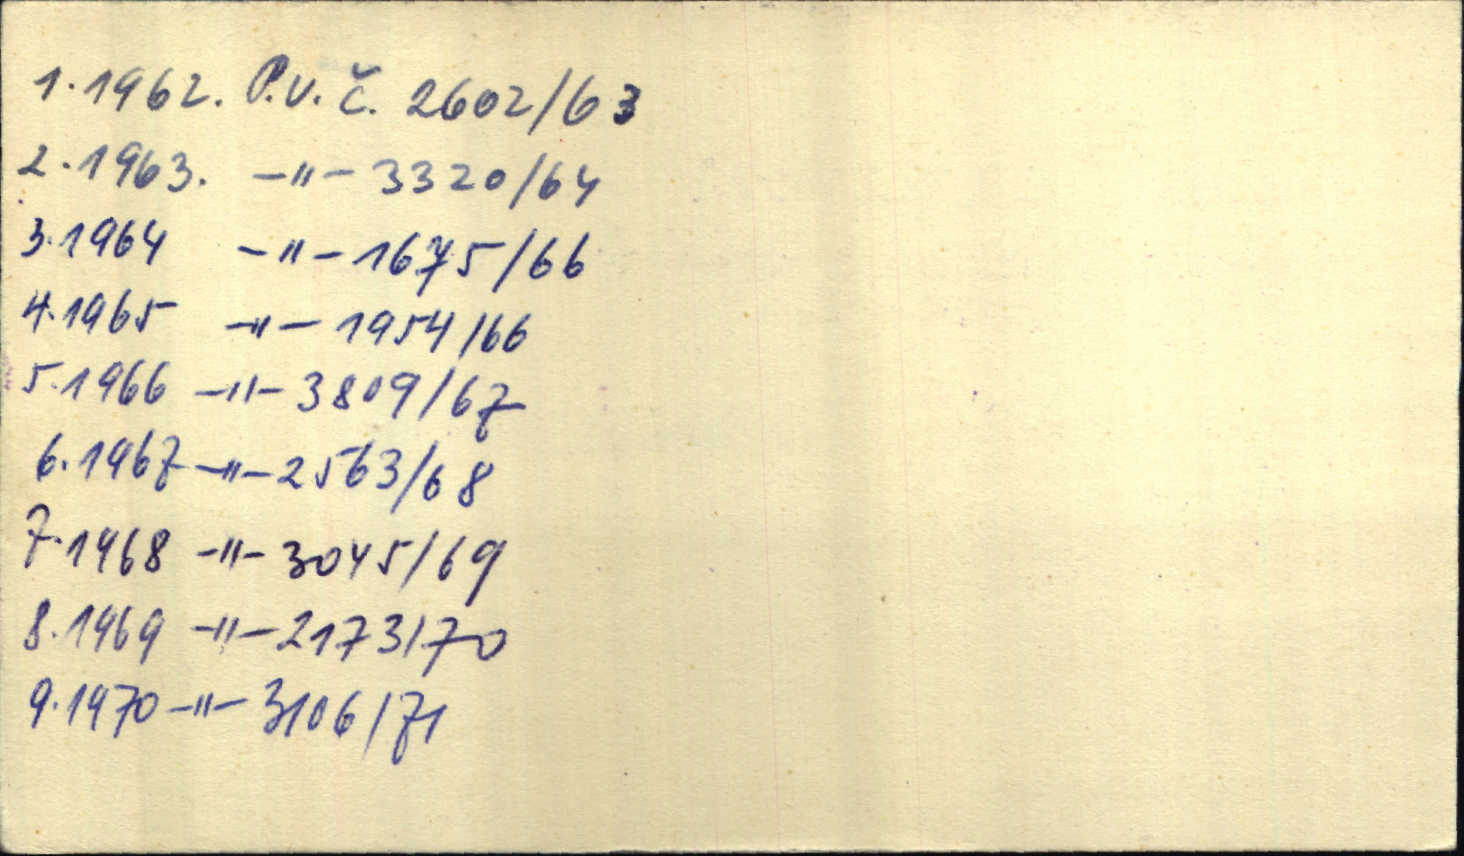 1. 1962. P.V. Č. 2602/63
2. 1963. -"- 3320/64
3. 1964 -"- 1675/66
4. 1965 -"- 1954/66
5. 1966 -"- 3809/67
6. 1967 -"- 2563/68
7. 1968 -"- 3045/69
8. 1969 -"- 2173/70
9. 1970 -"- 3106/71